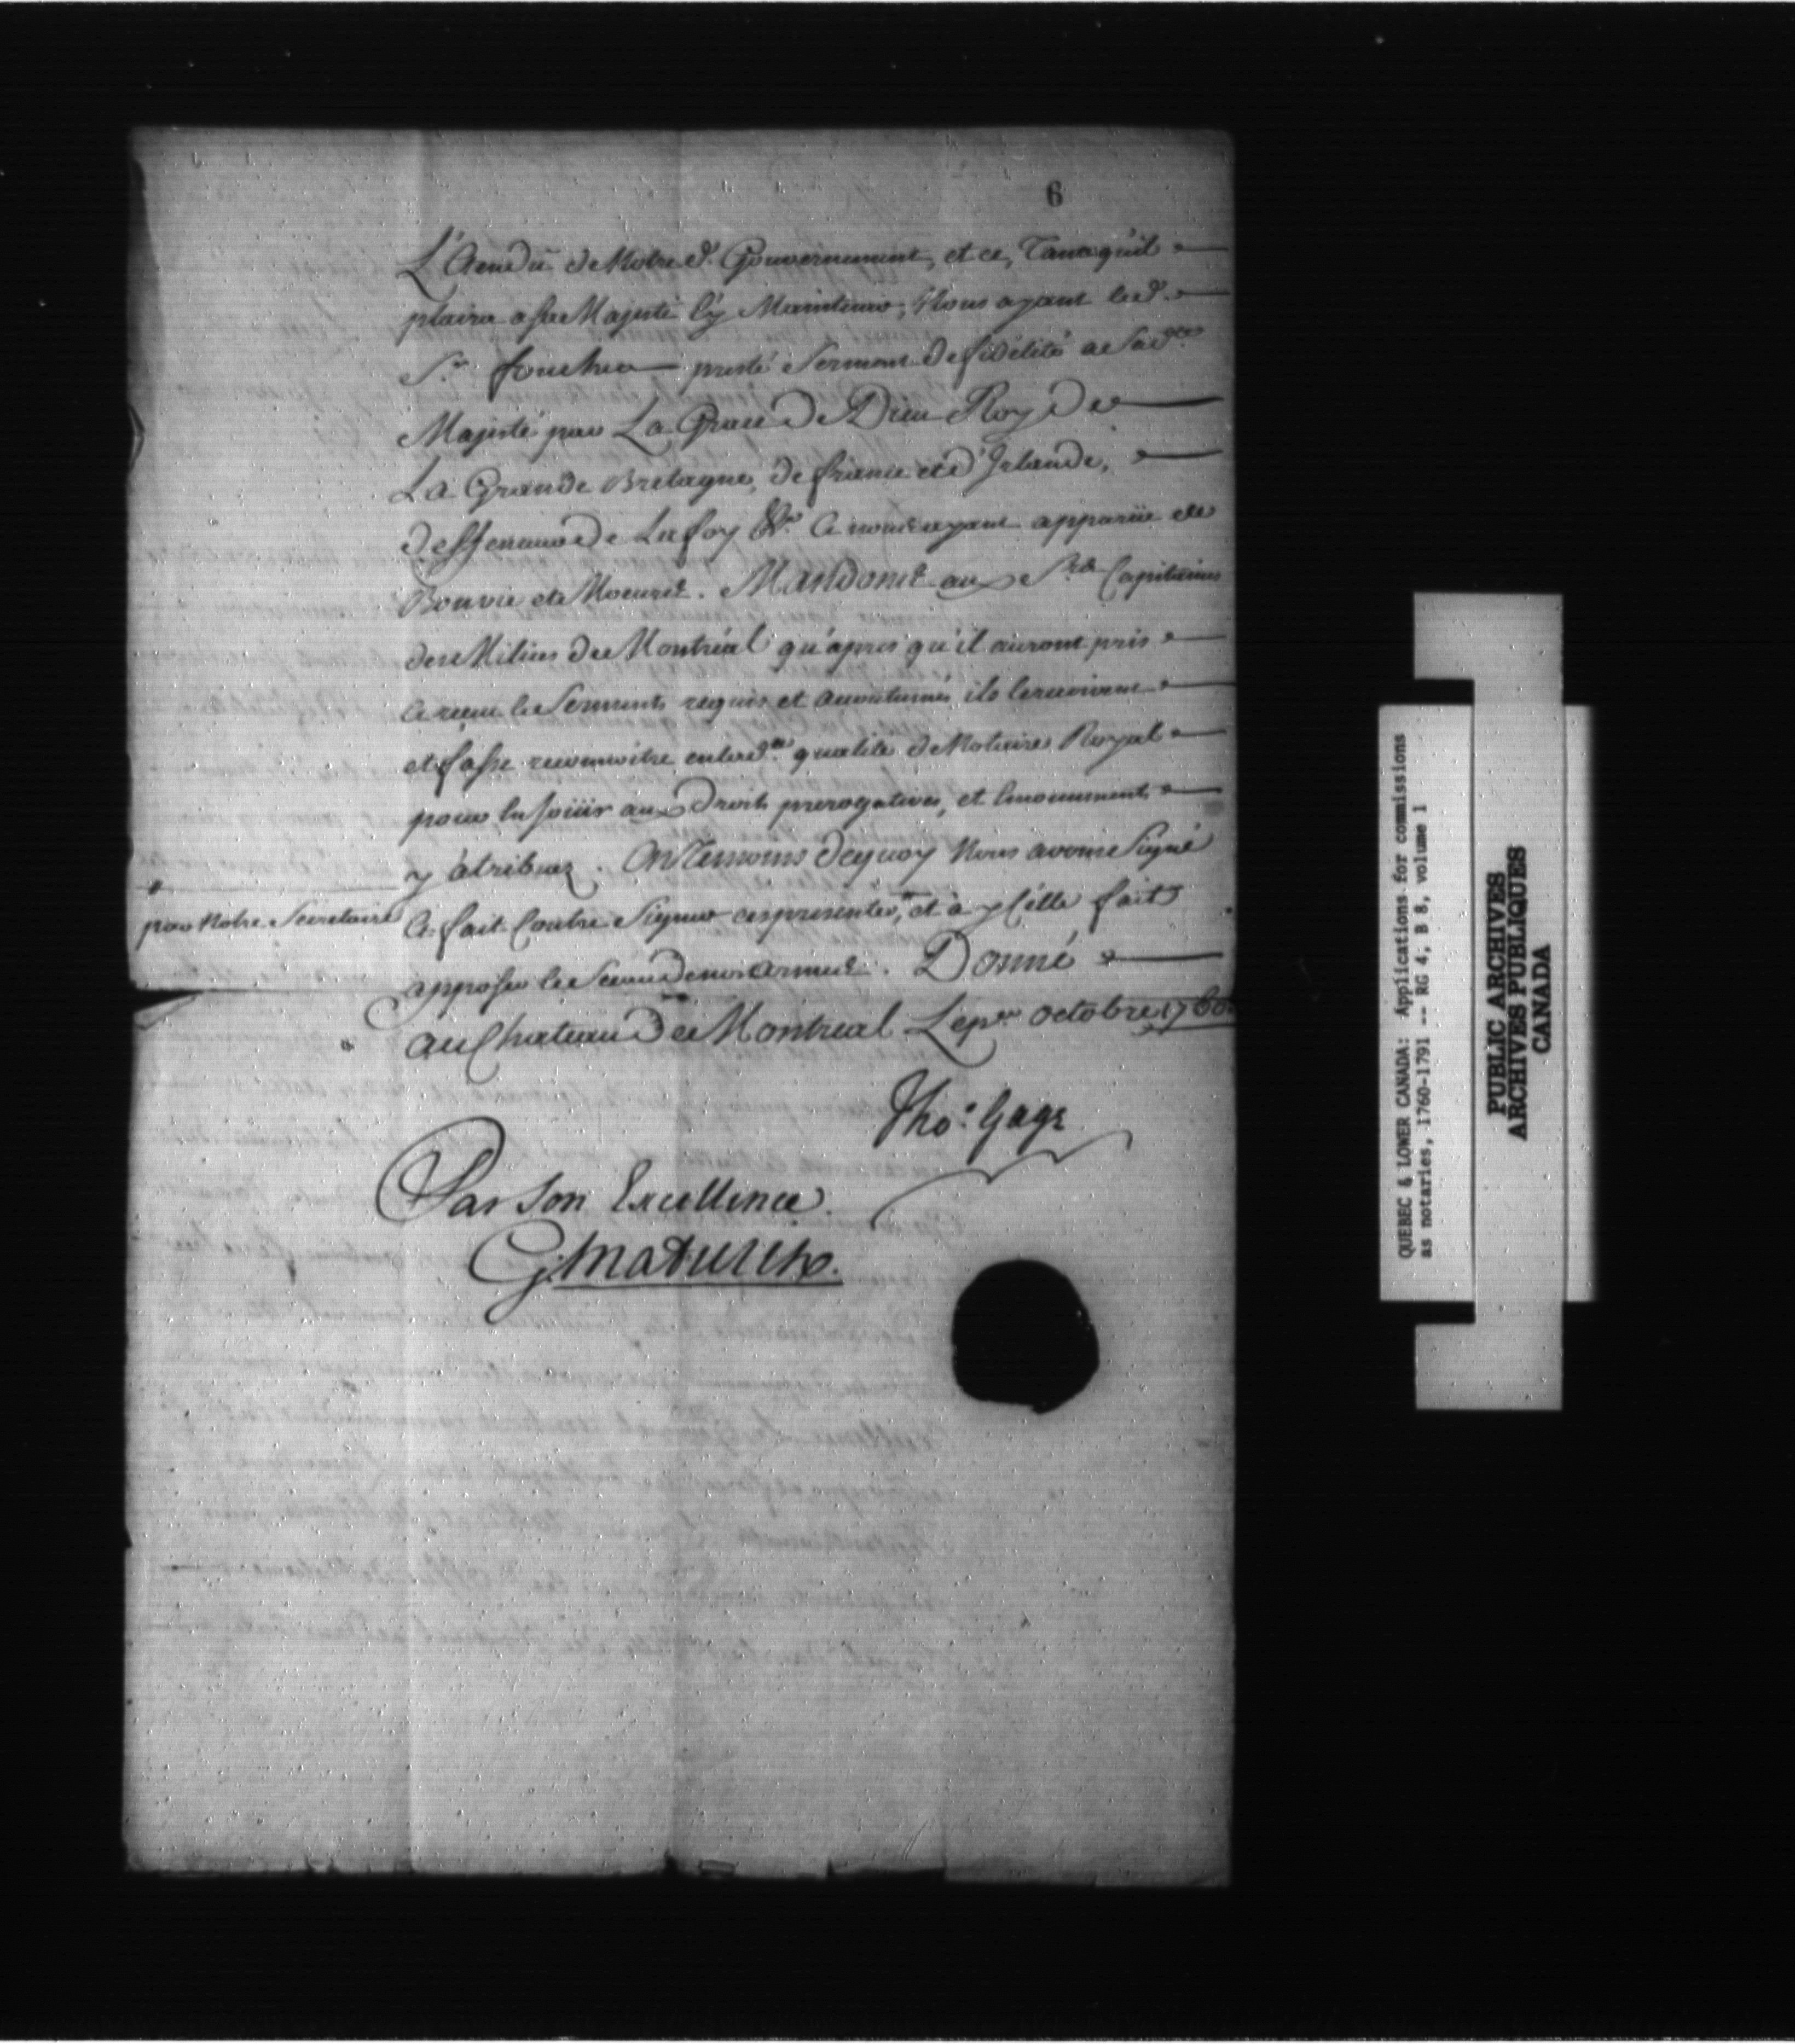 6
L'Etendu de Notre d. Gouvernement, et ce, Tant qu'il
plaira a sa Majesté l'y Maintenir, Nous ayant led.
Sr. foucher presté Serment de fidélité a Sad.te
Majesté par La Grace De Dieu Roy De
La Grande Bretagne, de france et d'Irlande,
deffenseur de La foy &a. Et nous ayant apparüe de
Bonvie et Moeurs. Mandons aux Srs. Capitaines
des Milices de Montréal qu'apres qu'il auront pris
et reçu les Serments requis et accoutumés, ils le reçoivent
et fasse reconnoitre en lad.te qualité de Notaire Royal
pour en Joüir aux Droits prerogatives, et Emoluments
y atribuez. En Temoins dequoy Nous avons Signé
et fait Contre Signer ces presentes, # et à ycelle fait
#
par Notre Secretaire
apposer le Sceau de nos Armes. Donné
au Chateau De Montreal Le pr. octobre 1760
Tho.s Gage
Par Son Excellence.
G. Maturin.
QUEBEC & LOWER CANADA: Applications for commissions
as notaries, 1760-1791 -- RG 4, B 8, volume 1
PUBLIC ARCHIVES
ARCHIVES PUBLIQUES
CANADA